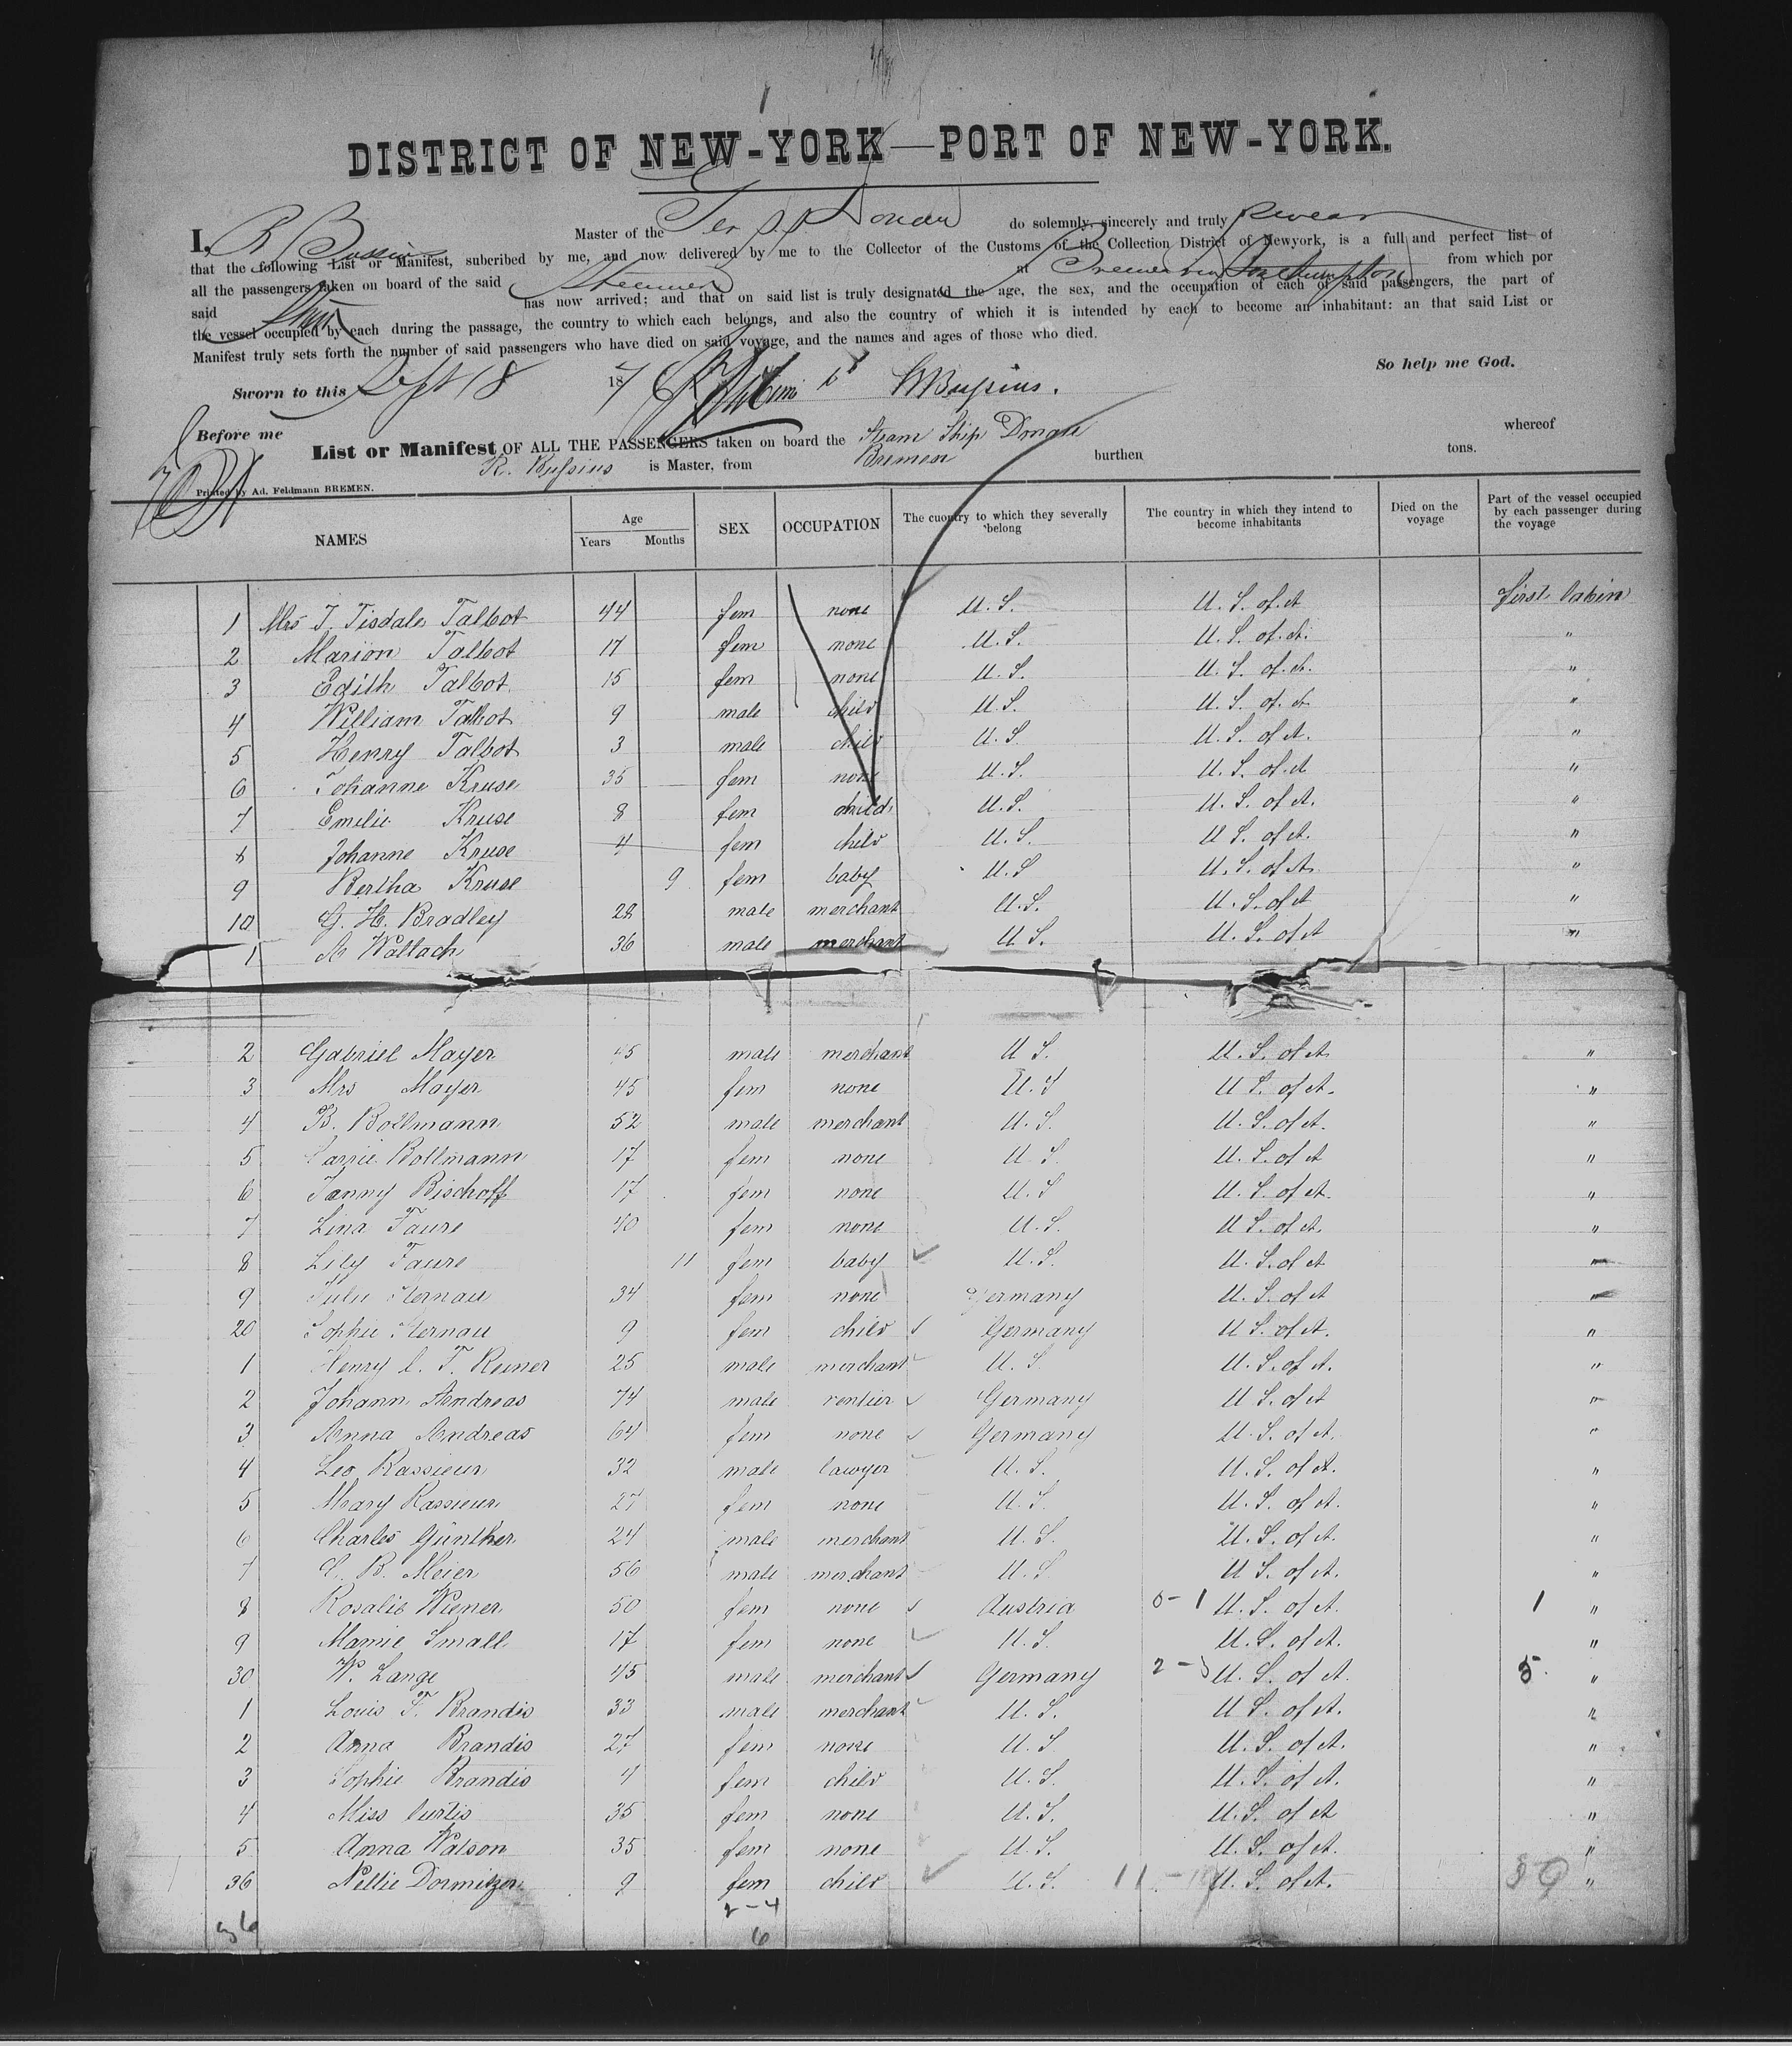 DISTRICT OF NEW-YORK—PORT OF NEW-YORK.
I, R. Bussius Master of the Ger S. S. Donau do solemnly, sincerely and truly swear
that the following List or Manifest, subcribed by me, and now delivered by me to the Collector of the Customs of the Collection District of Newyork, is a full and perfect list of
all the passengers taken on board of the said Steamer at Bremerhaven Southampton from which por
said Ship has now arrived; and that on said list is truly designated the age, the sex, and the occupation of each of said passengers, the part of
the vessel occupied by each during the passage, the country to which each belongs, and also the country of which it is intended by each to become an inhabitant: an that said List or
Manifest truly sets forth the number of said passengers who have died on said voyage, and the names and ages of those who died.
So help me God.
Sworn to this Sept 18 187 R Bussius.
Before me
List or Manifest OF ALL THE PASSENGERS taken on board the Steam Ship Donau whereof
R. Bussius is Master, from Bremen burthen tons.
Printed by Ad. Feldmann BREMEN.
NAMES Age Years Months SEX OCCUPATION The cuontry to which they severally belong The country in which they intend to become inhabitants Died on the voyage Part of the vessel occupied by each passenger during the voyage
1 Mrs I. Tisdale Talbot 44 fem none U.S. U.S. of A first Cabin
2 Marion Talbot 17 fem none U.S. U.S. of A. "
3 Edith Talbot 15 fem none U.S. U.S. of A. "
4 William Talbot 9 male child U.S. U.S. of A "
5 Henry Talbot 3 male child U.S. U.S. of A. "
6 Johanne Kruse 35 fem none U.S. U.S. of A "
7 Emilie Kruse 8 fem child U.S. U.S. of A. "
8 Johanne Kruse 4 fem child U.S. U.S. of A. "
9 Bertha Kruse 9 fem baby U.S U.S. of A. "
10 G. H. Bradley 28 male merchant U.S. U.S. of A "
1 A Wallach 36 male merchant U.S. U.S. of A "
2 Gabriel Mayer 45 male merchant U.S. U.S. of A "
3 Mrs Mayer 45 fem none U.S U.S. of A. "
4 B. Bollmann 52 male merchant U.S. U.S. of A. "
5 Carrie Bollmann 17 fem none U.S. U.S. of A "
6 Fanny Bischoff 17 fem none U.S U.S. of A. "
7 Lina Faure 40 fem none U.S. U.S. of A. "
8 Lily Faure 11 fem baby U.S. U.S. of A "
9 Julie Sternau 34 fem none Germany U.S. of A "
20 Sophie Sternau 9 fem child Germany U.S. of A. "
1 Henry C. F. Reiner 25 male merchant U.S. U.S. of A. "
2 Johann Andreas 74 male rentier Germany U.S. of A "
3 Anna Andreas 64 fem none Germany U.S. of A. "
4 Leo Rassieur 32 male lawyer U.S. U.S. of A. "
5 Mary Rassieur 27 fem none U.S. U.S. of A. "
6 Charles Günther 24 male merchant U.S. U.S. of A. "
7 E. B. Meier 56 male merchant U.S U.S. of A. "
8 Rosalie Wiener 50 fem none Austria 0-1 U.S. of A. 1 "
9 Mamie Small 17 fem none U.S. U.S. of A. "
30 W. Lange 45 male merchant Germany 2-3 U.S. of A. 5 "
1 Louis F. Brandis 33 male merchant U.S. U.S. of A. "
2 Anna Brandis 27 fem none U.S U.S. of A. "
3 Sophie Brandis 4 fem child U.S. U.S. of A. "
4 Miss Curtis 35 fem none U.S. U.S. of A "
5 Anna Watson 35 fem none U.S. U.S. of A. "
36 Nellie Dormitzer 9 fem child U.S. 11- U.S. of A. "
36 2-4
6